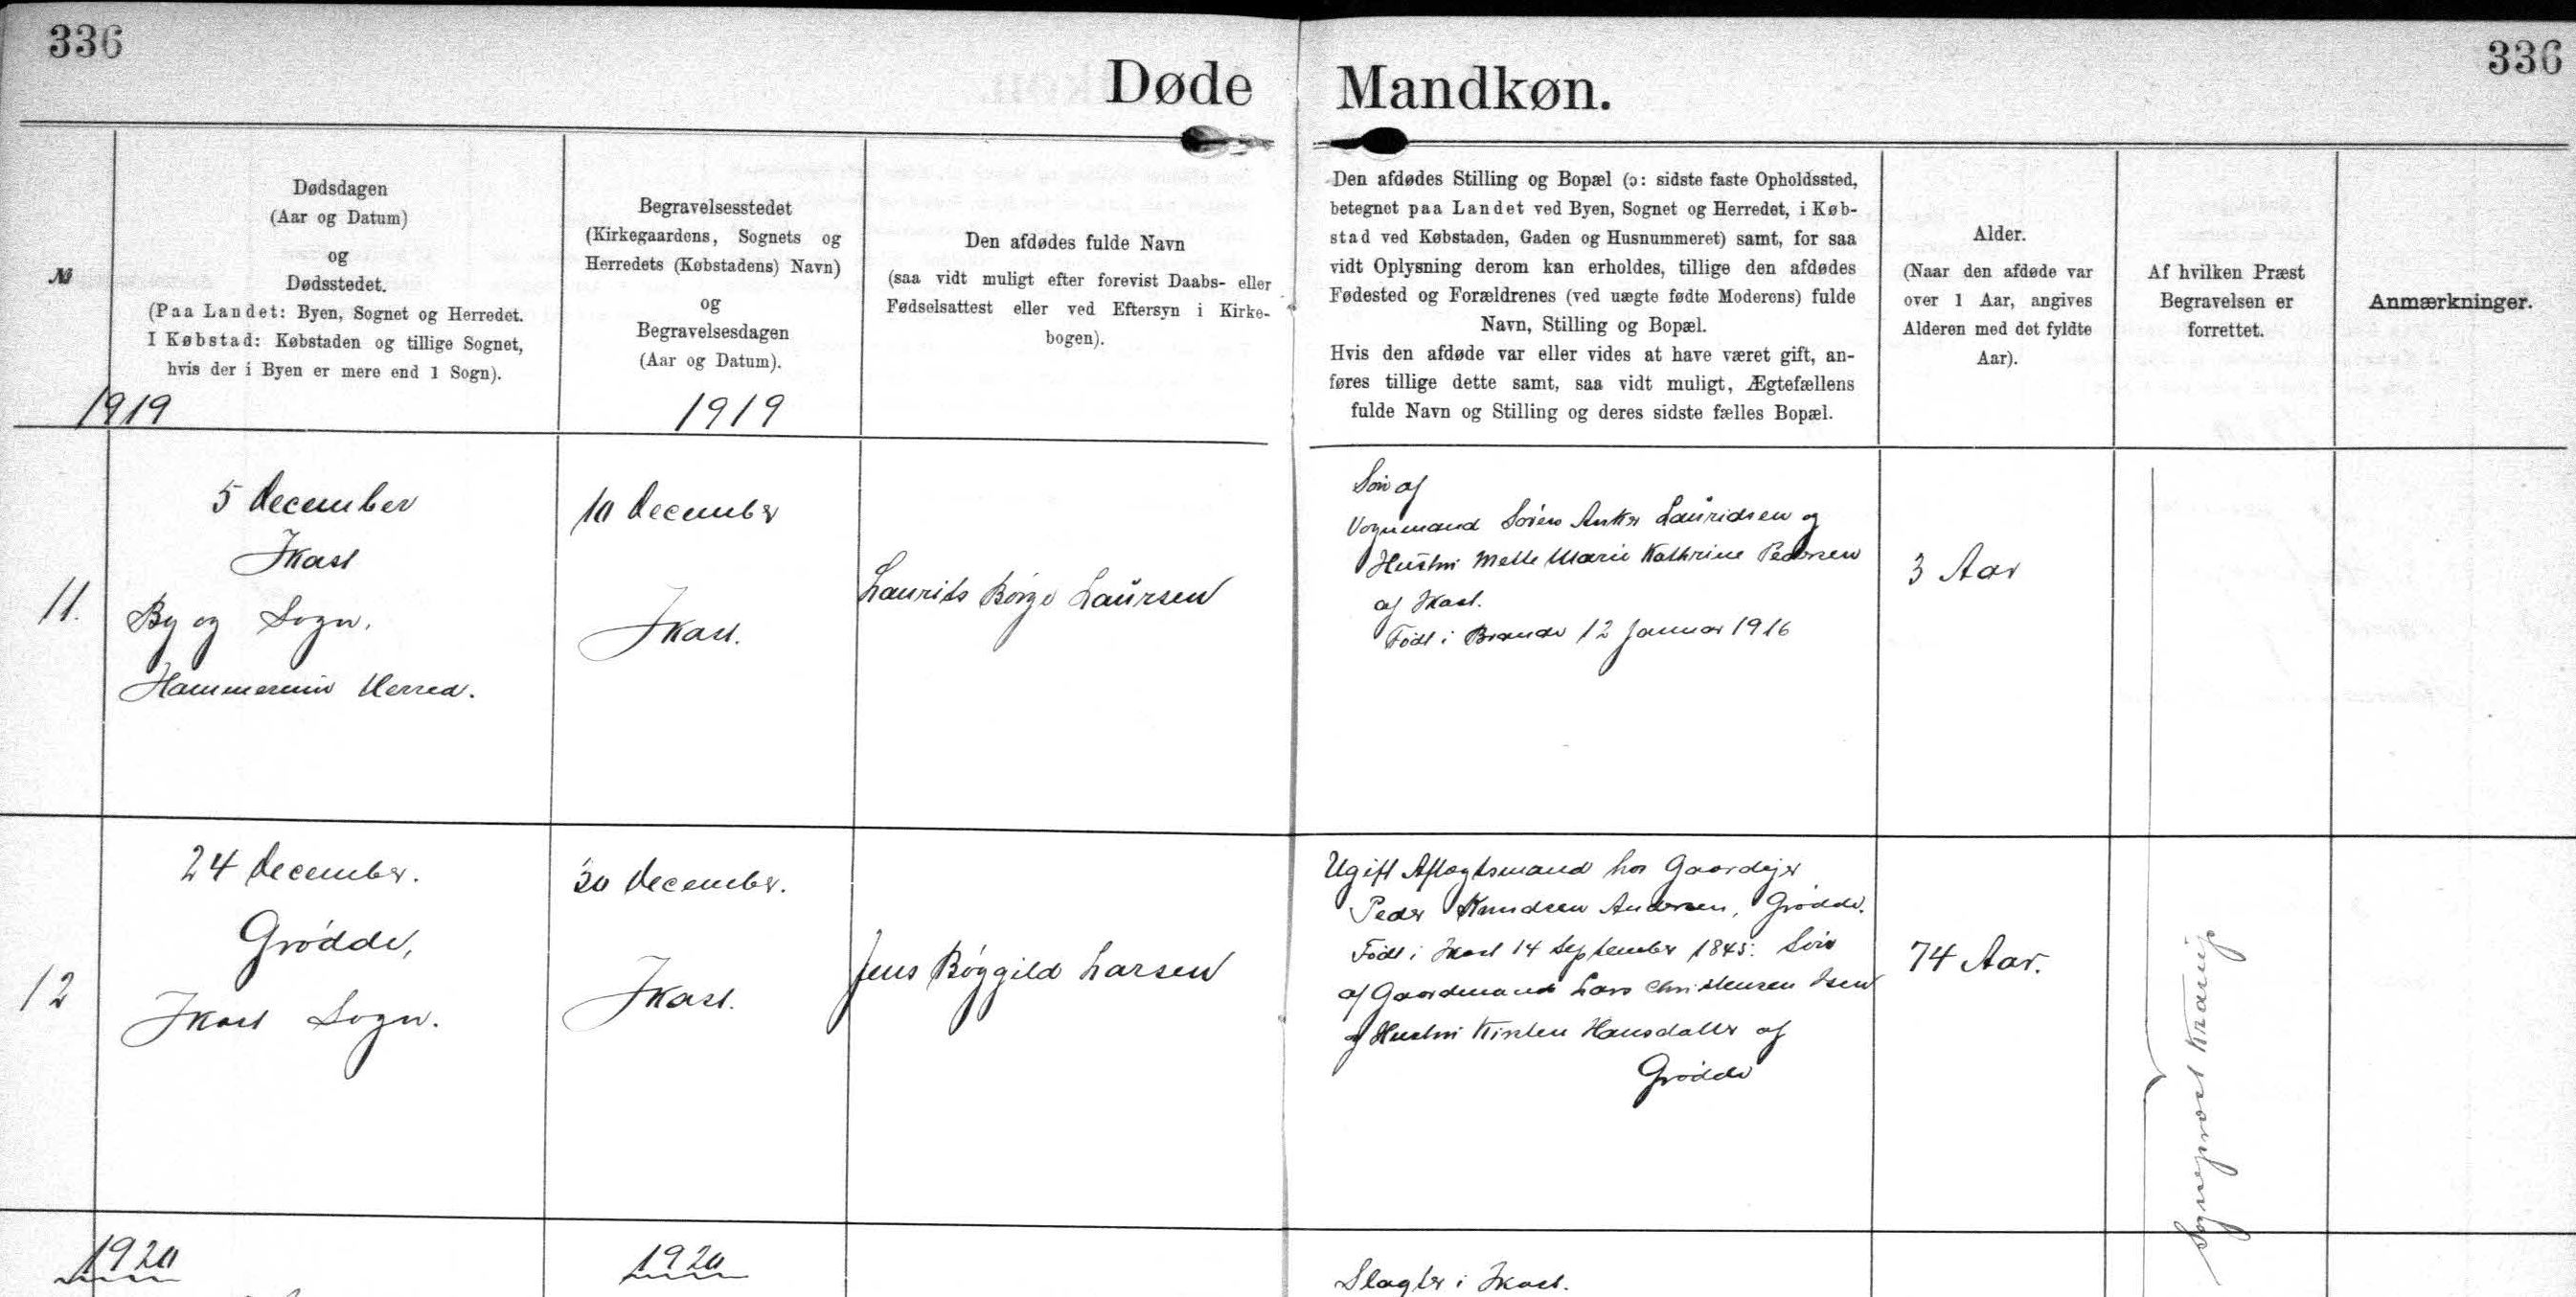 336
336
Døde Mandkøn.
№
Dødsdagen
(Aar og Datum)
og
Dødsstedet.
(Paa Landet: Byen, Sognet og Herredet.
I Købstad: Købstaden og tillige Sognet,
hvis der i Byen er mere end 1 Sogn).
Begravelsesstedet
(Kirkegaardens, Sognets og
Herredets (Købstadens) Navn)
og
Begravelsesdagen
(Aar og Datum).
Den afdødes fulde Navn
(saa vidt muligt efter forevist Daabs- eller
Fødselsattest eller ved Eftersyn i Kirke-
bogen).
Den afdødes Stilling og Bopæl (ɔ: sidste faste Opholdssted,
betegnet paa Landet ved Byen, Sognet og Herredet, i Køb-
stad ved Købstaden, Gaden og Husnummeret) samt, for saa
vidt Oplysning derom kan erholdes, tillige den afdødes
Fødested og Forældrenes (ved uægte fødte Moderens) fulde
Navn, Stilling og Bopæl.
Hvis den afdøde var eller vides at have været gift, an-
føres tillige dette samt, saa vidt muligt, Ægtefællens
fulde Navn og Stilling og deres sidste fælles Bopæl.
Alder.
(Naar den afdøde var
over 1 Aar, angives
Alderen med det fyldte
Aar).
Af hvilken Præst
Begravelsen er
forrettet.
Anmærkninger.
1919
1919
11.
5 December
Ikast
By og Sogn.
Hammerum Herred.
10 December
Ikast.
Laurids Børge Laursen
Søn af
Vognmand Søren Anker Lauridsen og
Hustru Mette Marie Kathrine Pedersen
af Ikast.
Født i Brande 12 Januar 1916
3 Aar
12
24 December.
Grødde,
Ikast Sogn.
30 December.
Ikast.
Jens Bøggild Larsen
Ugift Aftægtsmand hos Gaardejer
Peder Knudsen Andersen, Grødde.
Født i Ikast 14 September 1845. Søn
af Gaardmand Lars Christensen
og Hustru Kirsten Hansdatter af
Grødde
74 Aar.
Sogneprovst Krarup
1920
1920
Slagter i Ikast.